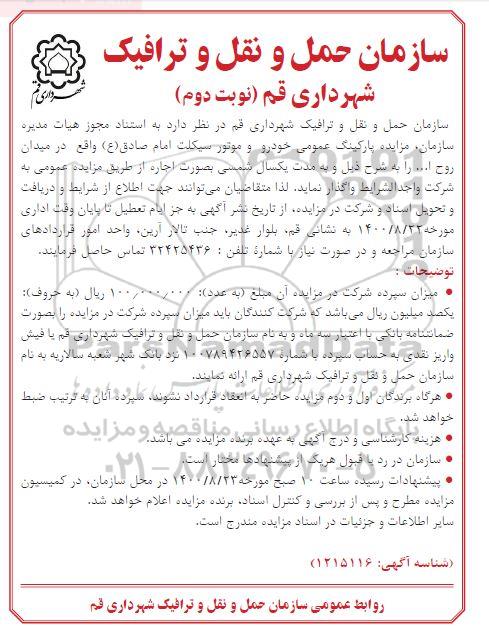 سازمان حمل و نقل و ترافیک
شهرداری قم (نوبت دوم)
شهرداری قم
سازمان حمل و نقل و ترافیک شهرداری قم در نظر دارد به استناد مجوز هیات مدیره
سازمان، مزایده پارکینگ عمومی خودرو و موتور سیکلت امام صادق(ع) واقع در میدان
روح ا... را به شرح ذیل و به مدت یکسال شمسی بصورت اجاره از طریق مزایده عمومی به
شرکت واجدالشرایط واگذار نماید. لذا متقاضیان می‌توانند جهت اطلاع از شرایط و دریافت
و تحویل اسناد و شرکت در مزایده، از تاریخ نشر آگهی به جز ایام تعطیل تا پایان وقت اداری
مورخه ۱۴۰۰/۸/۲۲ به نشانی قم، بلوار غدیر، جنب تالار آرین، واحد امور قراردادهای
سازمان مراجعه و در صورت نیاز با شمارهٔ تلفن : ۳۲۴۲۵۴۳۶ تماس حاصل فرمایند.
توضیحات :
● میزان سپرده شرکت در مزایده آن مبلغ (به عدد): ۱۰۰,۰۰۰,۰۰۰ ریال (به حروف):
یکصد میلیون ریال می‌باشد که شرکت کنندگان باید میزان سپرده شرکت در مزایده را بصورت
ضمانتنامه بانکی با اعتبار سه ماه و به نام سازمان حمل و نقل و ترافیک شهرداری قم یا فیش
واریز نقدی به حساب سپرده با شمارهٔ ۱۰۰۷۸۹۴۲۶۵۵۷ نزد بانک شهر شعبه سالاریه به نام
سازمان حمل و نقل و ترافیک شهرداری قم ارائه نمایند.
● هرگاه برندگان اول و دوم مزایده حاضر به انعقاد قرارداد نشوند، سپرده آنان به ترتیب ضبط
خواهد شد.
● هزینه کارشناسی و درج آگهی به عهده برنده مزایده می باشد.
● سازمان در رد یا قبول هریک از پیشنهادها مختار است.
● پیشنهادات رسیده ساعت ۱۰ صبح مورخه ۱۴۰۰/۸/۲۳ در محل سازمان، در کمیسیون
مزایده مطرح و پس از بررسی و کنترل اسناد، برنده مزایده اعلام خواهد شد.
سایر اطلاعات و جزئیات در اسناد مزایده مندرج است.
(شناسه آگهی: ۱۲۱۵۱۱۶)
روابط عمومی سازمان حمل و نقل و ترافیک شهرداری قم
پایگاه اطلاع رسانی مناقصه و مزایده